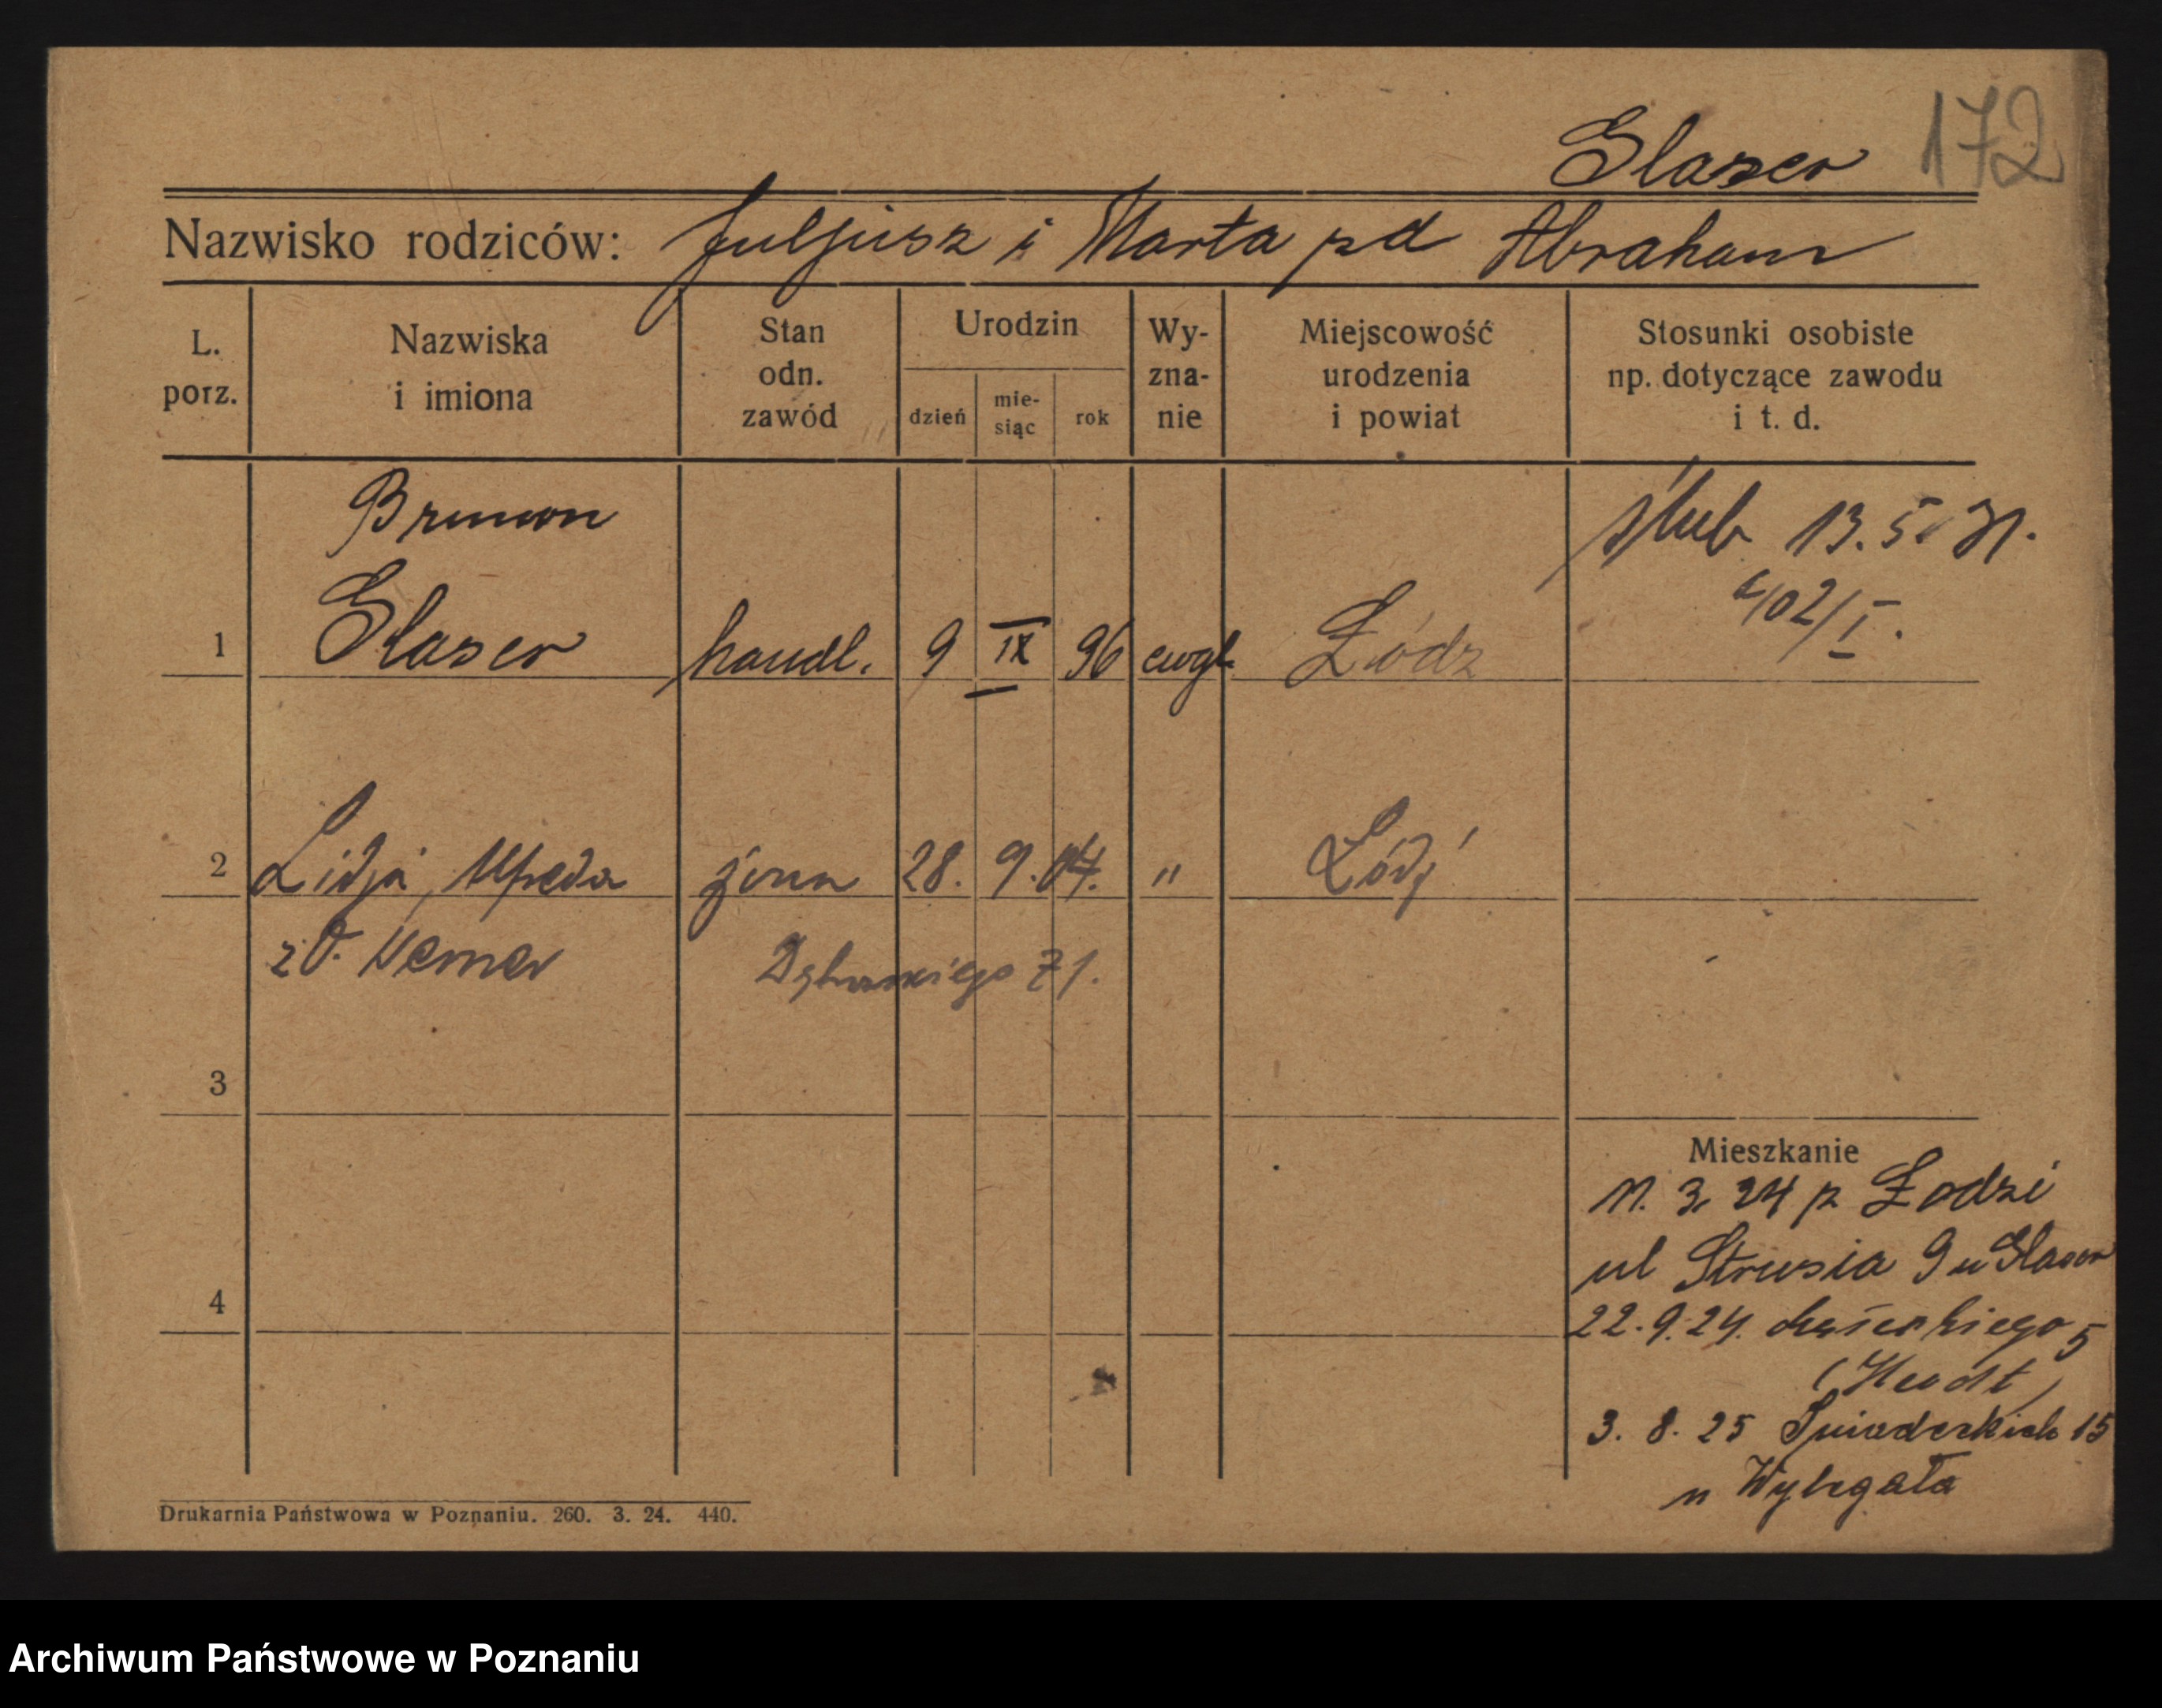 172
Glaser
Nazwisko rodziców: Juljusz i Marta zd Abraham
L. porz.
Nazwiska i imiona
Stan odn. zawód
Urodzin
dzień
mie-siąc
rok
Wy-zna-nie
Miejscowość urodzenia i powiat
Stosunki osobiste np. dotyczące zawodu i t. d.
Brunon
ślub 13.5. 31.
402/I.
1 Glaser handl. 9 IX 96 ewgl. Łódz
2 Lidja, Alfreda żona 28. 9. 04. " Łódź
zd. Werner 71.
3
Mieszkanie
11. 3. 24 z Łodzi
ul Strusia 9 u Glaser
4
22. 9. 24. 5
3. 8. 25 Śniadeckich 15
u Wybegała
Drukarnia Państwowa w Poznaniu. 260. 3. 24. 440.
Archiwum Państwowe w Poznaniu